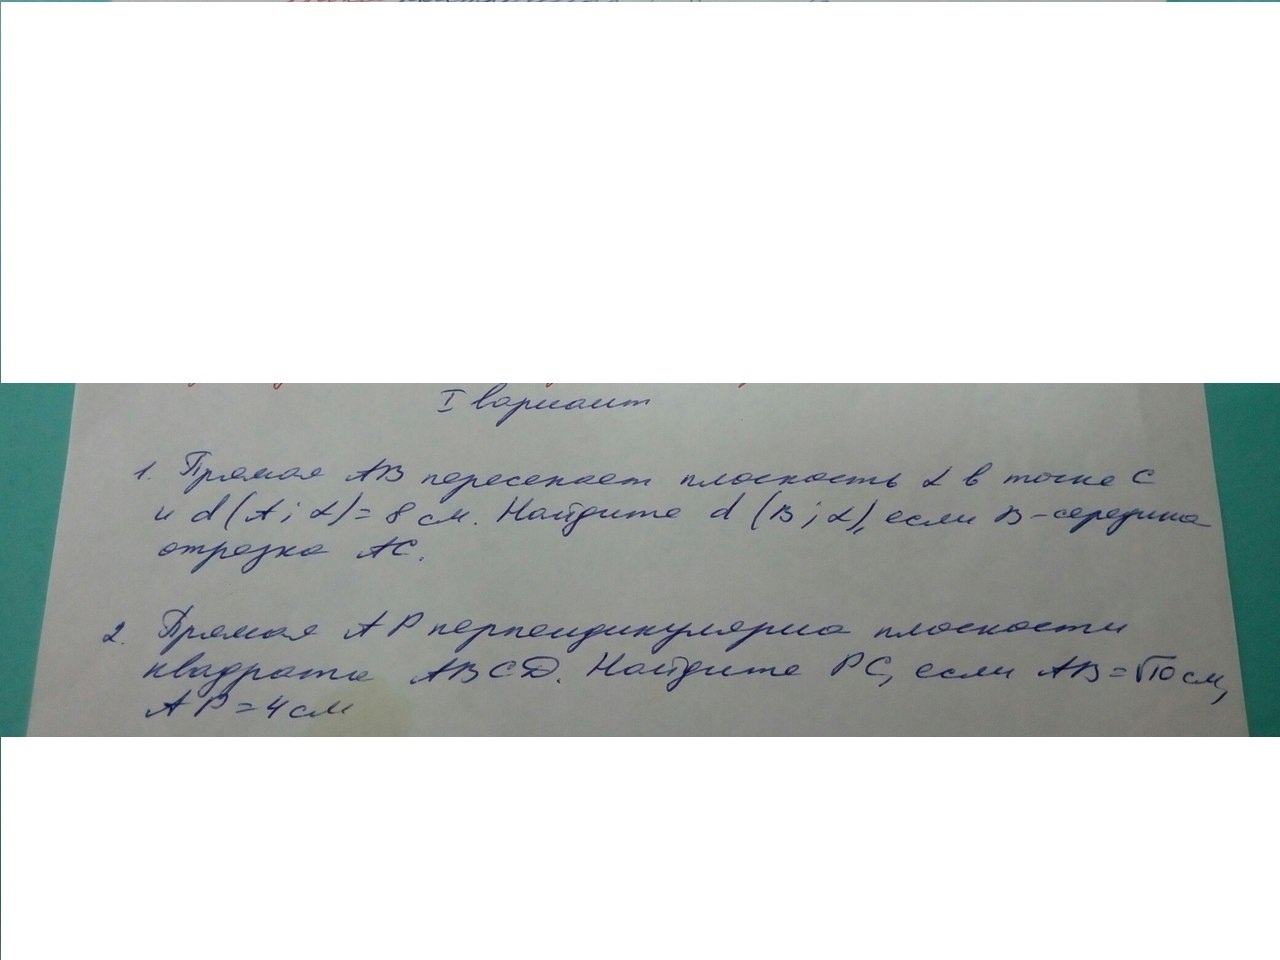 I вариант
1. Прямая AB пересекает плоскость α в точке C
и d(A; α) = 8 см. Найдите d (B; α), если B - середина
отрезка AC.
2. Прямая AP перпендикулярна плоскости
квадрата ABCD. Найдите PC, если AB = √10 см,
AP = 4 см